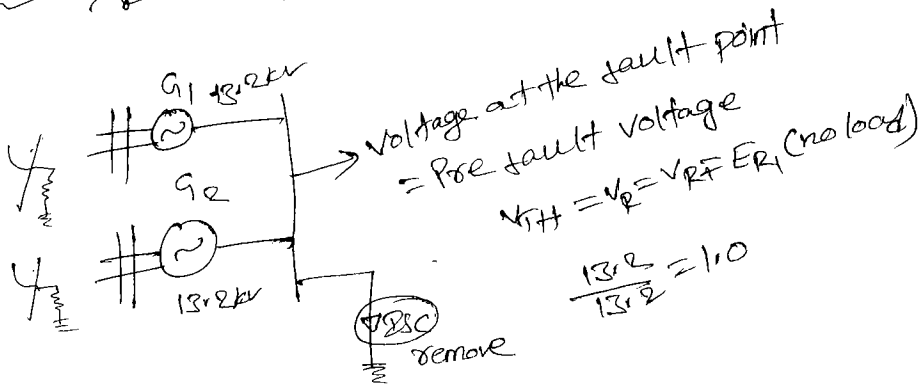 G1 13.2kV
voltage at the fault point
= Pre fault voltage
VTH = VR = VRF ER1 (no load)
G2
13.2 / 13.2 = 1.0
13.2kV
remove